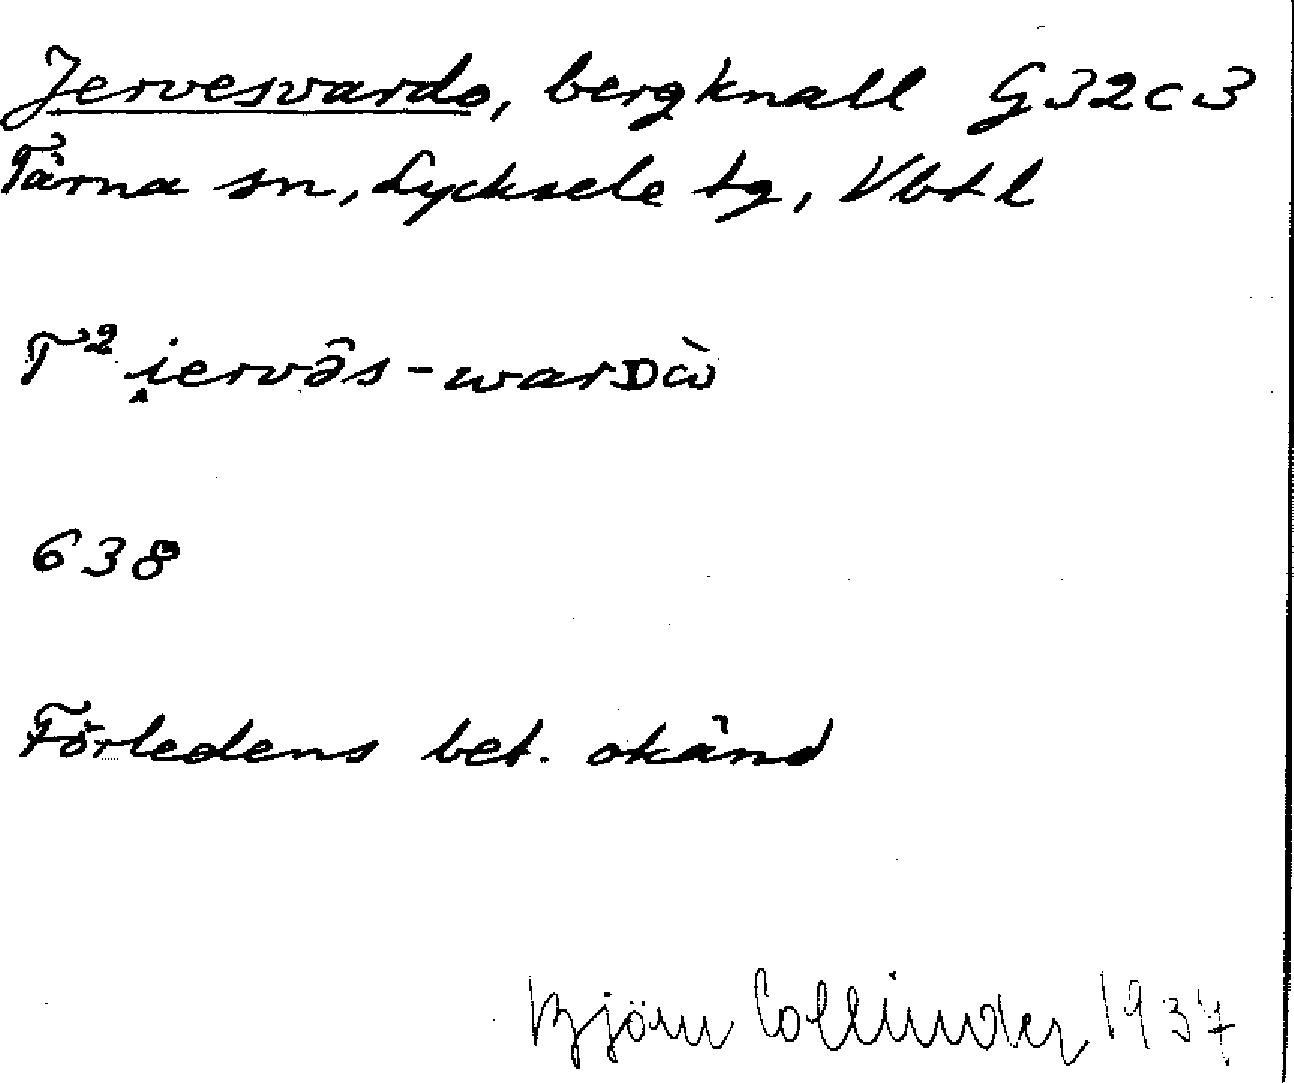 Jervesvardo, bergknall G32c3
Tärna sn, Lycksele tg, Vbtl
T² i̭ervə̂s-warᴅὼ
638
Förledens bet. okänd
Björn Collinder 1937